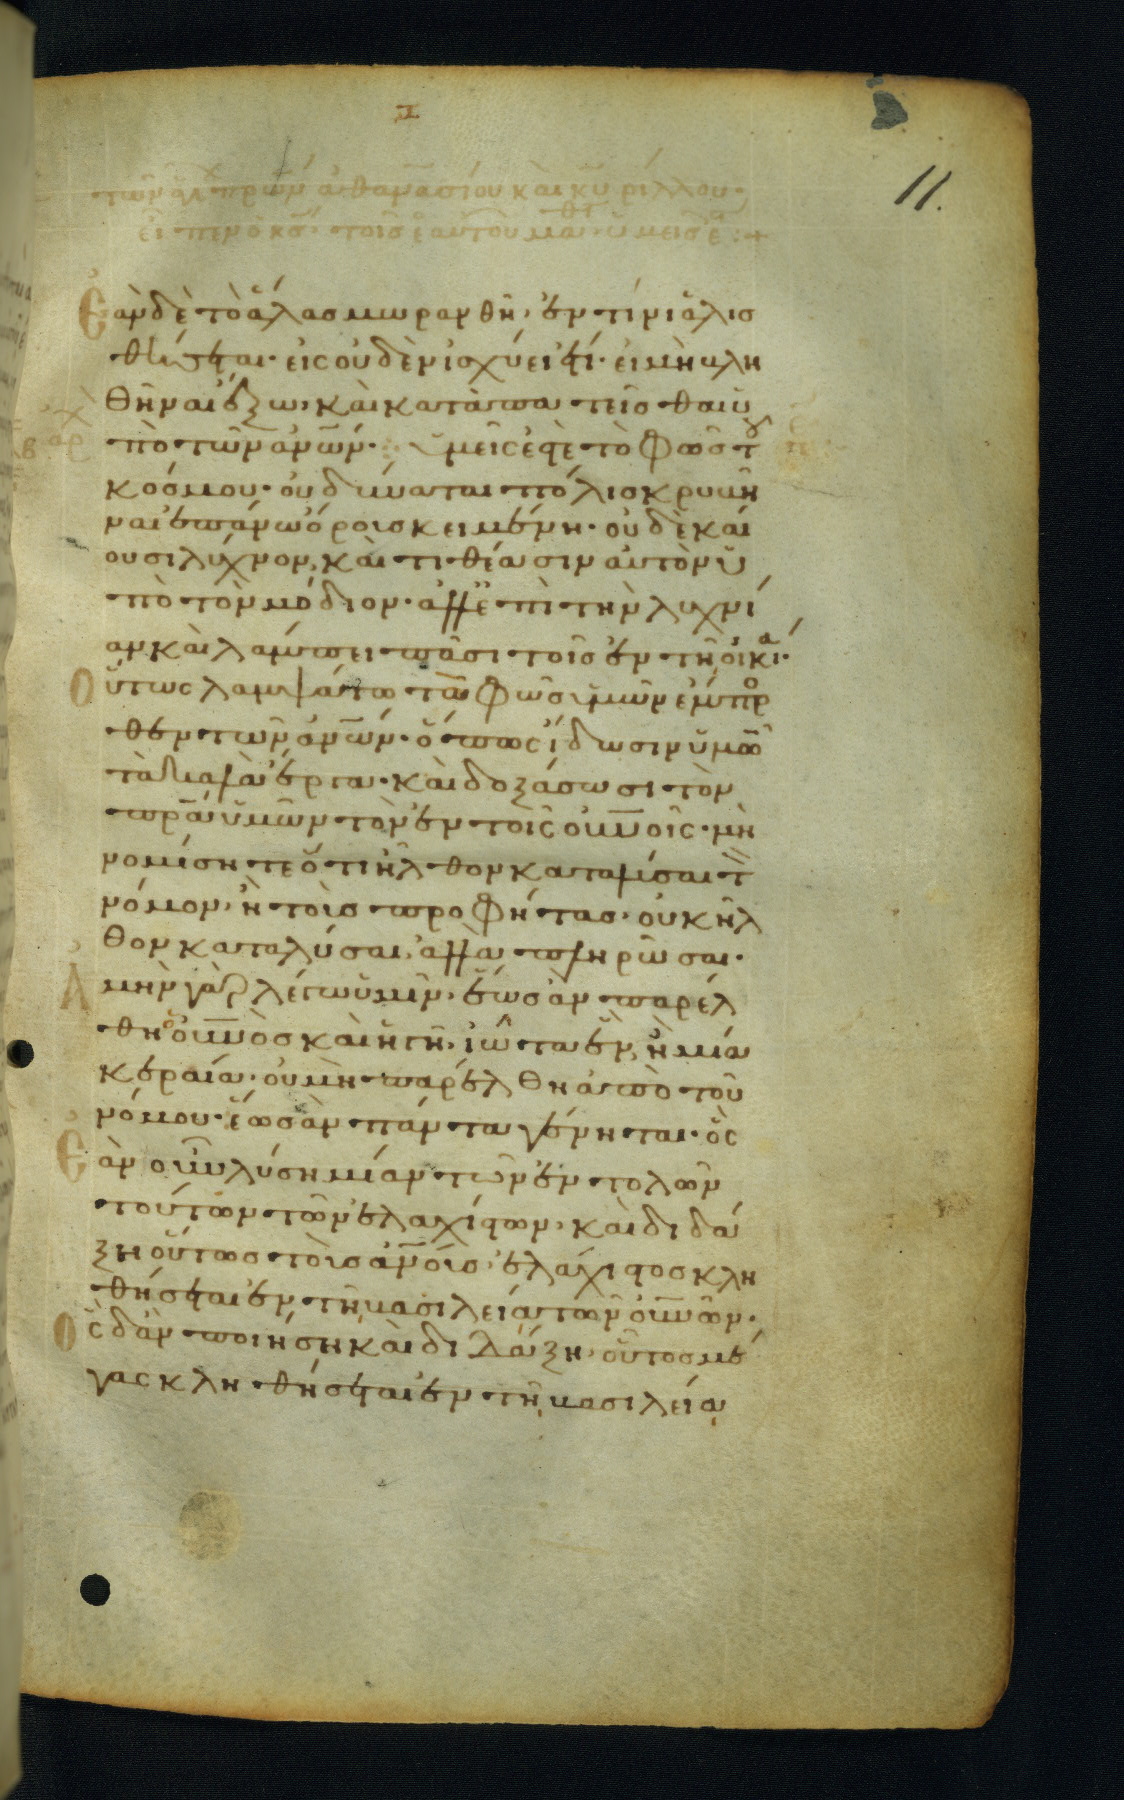 11.
τῶν ἁγι πρων ἀθανασίου και κυρίλλου·
εἶπεν ὁ κς τοῖς ἑαυτοῦ μαθ ὑμεῖς ἐ:+
Ἐὰν δὲ τὸ ἅλας μωρανθῆ, ἐν τίνι ἁλισ
θήσεται· εἰς οὐδὲν ἰσχύει ἔτι· εἰ μὴ βλη
θῆναι ἔξω, καὶ καταπατεῖσθαι ὑ
πὸ τῶν ἀνων· ὑμεῖς ἐστὲ τὸ φῶς τοῦ
κόσμου· οὐ δύναται πόλις κρυβῆ
ναι ἐπάνω ὄρους κειμένη· οὐδὲ καί
ουσι λύχνον, καὶ τιθέασιν αὐτὸν ὑ
πὸ τὸν μόδιον· ἀλλ' ἐπὶ τὴν λυχνί
αν καὶ λάμπει πᾶσι τοῖς ἐν τῆ οἰκία·
Οὕτως λαμψάτω τὸ φῶς ὑμῶν ἔμπρο
σθεν τῶν ἀνων· ὅπως ἴδωσιν ὑμῶν
τὰ καλὰ ἔργα· καὶ δοξάσωσι τὸν
πρα ὑμῶν τὸν ἐν τοῖς οὐνοις· μὴ
νομίσητε ὅτι ἦλθον καταλῦσαι τὸν
νόμον, ἢ τοὺς προφήτας· οὐκ ἦλ
θον καταλῦσαι, ἀλλὰ πληρῶσαι·
Ἀμὴν γὰρ λέγω ὑμῖν, ἕως ἂν παρέλ
θη ὁ οὐνος καὶ ἡ γῆ, ἰῶτα ἓν, ἢ μία
κεραία, οὐ μὴ παρέλθη ἀπὸ τοῦ
νόμου· ἕως ἂν πάντα γένηται· ὃς
Ἐὰν οὖν λύση μίαν τῶν ἐντολῶν
τούτων τῶν ἐλαχίστων, καὶ διδά
ξη οὕτως τοὺς ἀνους, ἐλάχιστος κλη
θήσεται ἐν τῆ βασιλεία τῶν οὐνων·
Ὃς δ' ἂν ποιήση καὶ διδάξη, οὗτος μέ
γας κληθήσεται ἐν τῆ βασιλεία